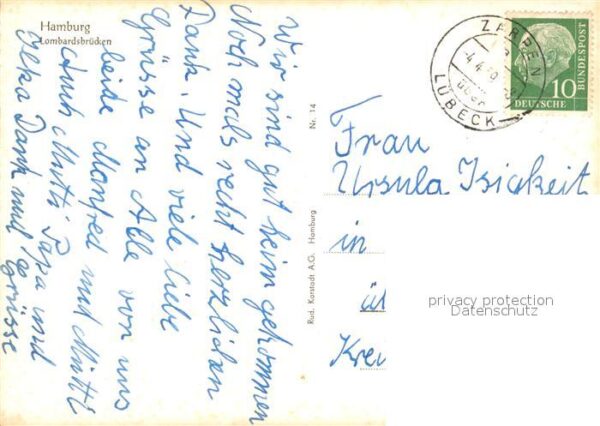 Hamburg
Lombardsbrücken
Wir sind gut heim gekommen
Noch mals recht herzlichen
Dank. Und viele liebe
Grüsse an Alle von uns
beide Manfred und Mutti
Auch Mutti Papa und
Ilka Dank und Grüsse
Nr. 14
Rud. Karstadt A.G. Hamburg
ZARPEN
über
LÜBECK
10
DEUTSCHE
BUNDESPOST
Frau
Ursula Isigkeit
in
üb
Krei
privacy protection
Datenschutz